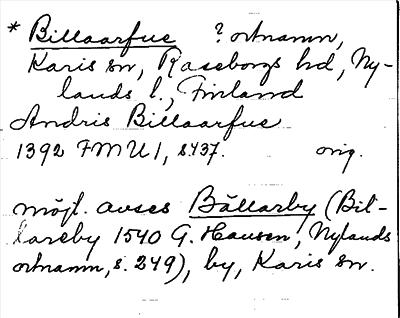 * Billaarfue ? ortnamn,
Karis sn, Raseborgs hd, Ny-
lands l., Finland
Andris Billaarfue
1392 FMU 1, s. 437. orig.
möjl. avses Bällarby (Bil-
lareby 1540 G. Hausen, Nylands
ortnamn, s. 249), by, Karis sn.